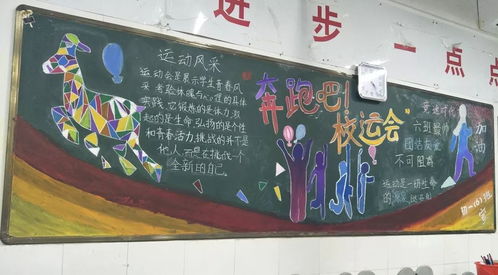 进步一点点
运动风采
运动会是展示学生青春风
采考验体魄与心理的具体
实践它锻炼的是体力激
起的是生命弘扬的是个性
和青春活力挑战的并不是
他人而是在挑战一个
全新的自己
奔跑吧!
校运会
竞速时代
六班最帅
团结友爱
不可阻挡
运动是一切生命
的源泉
加油
初一(6)班